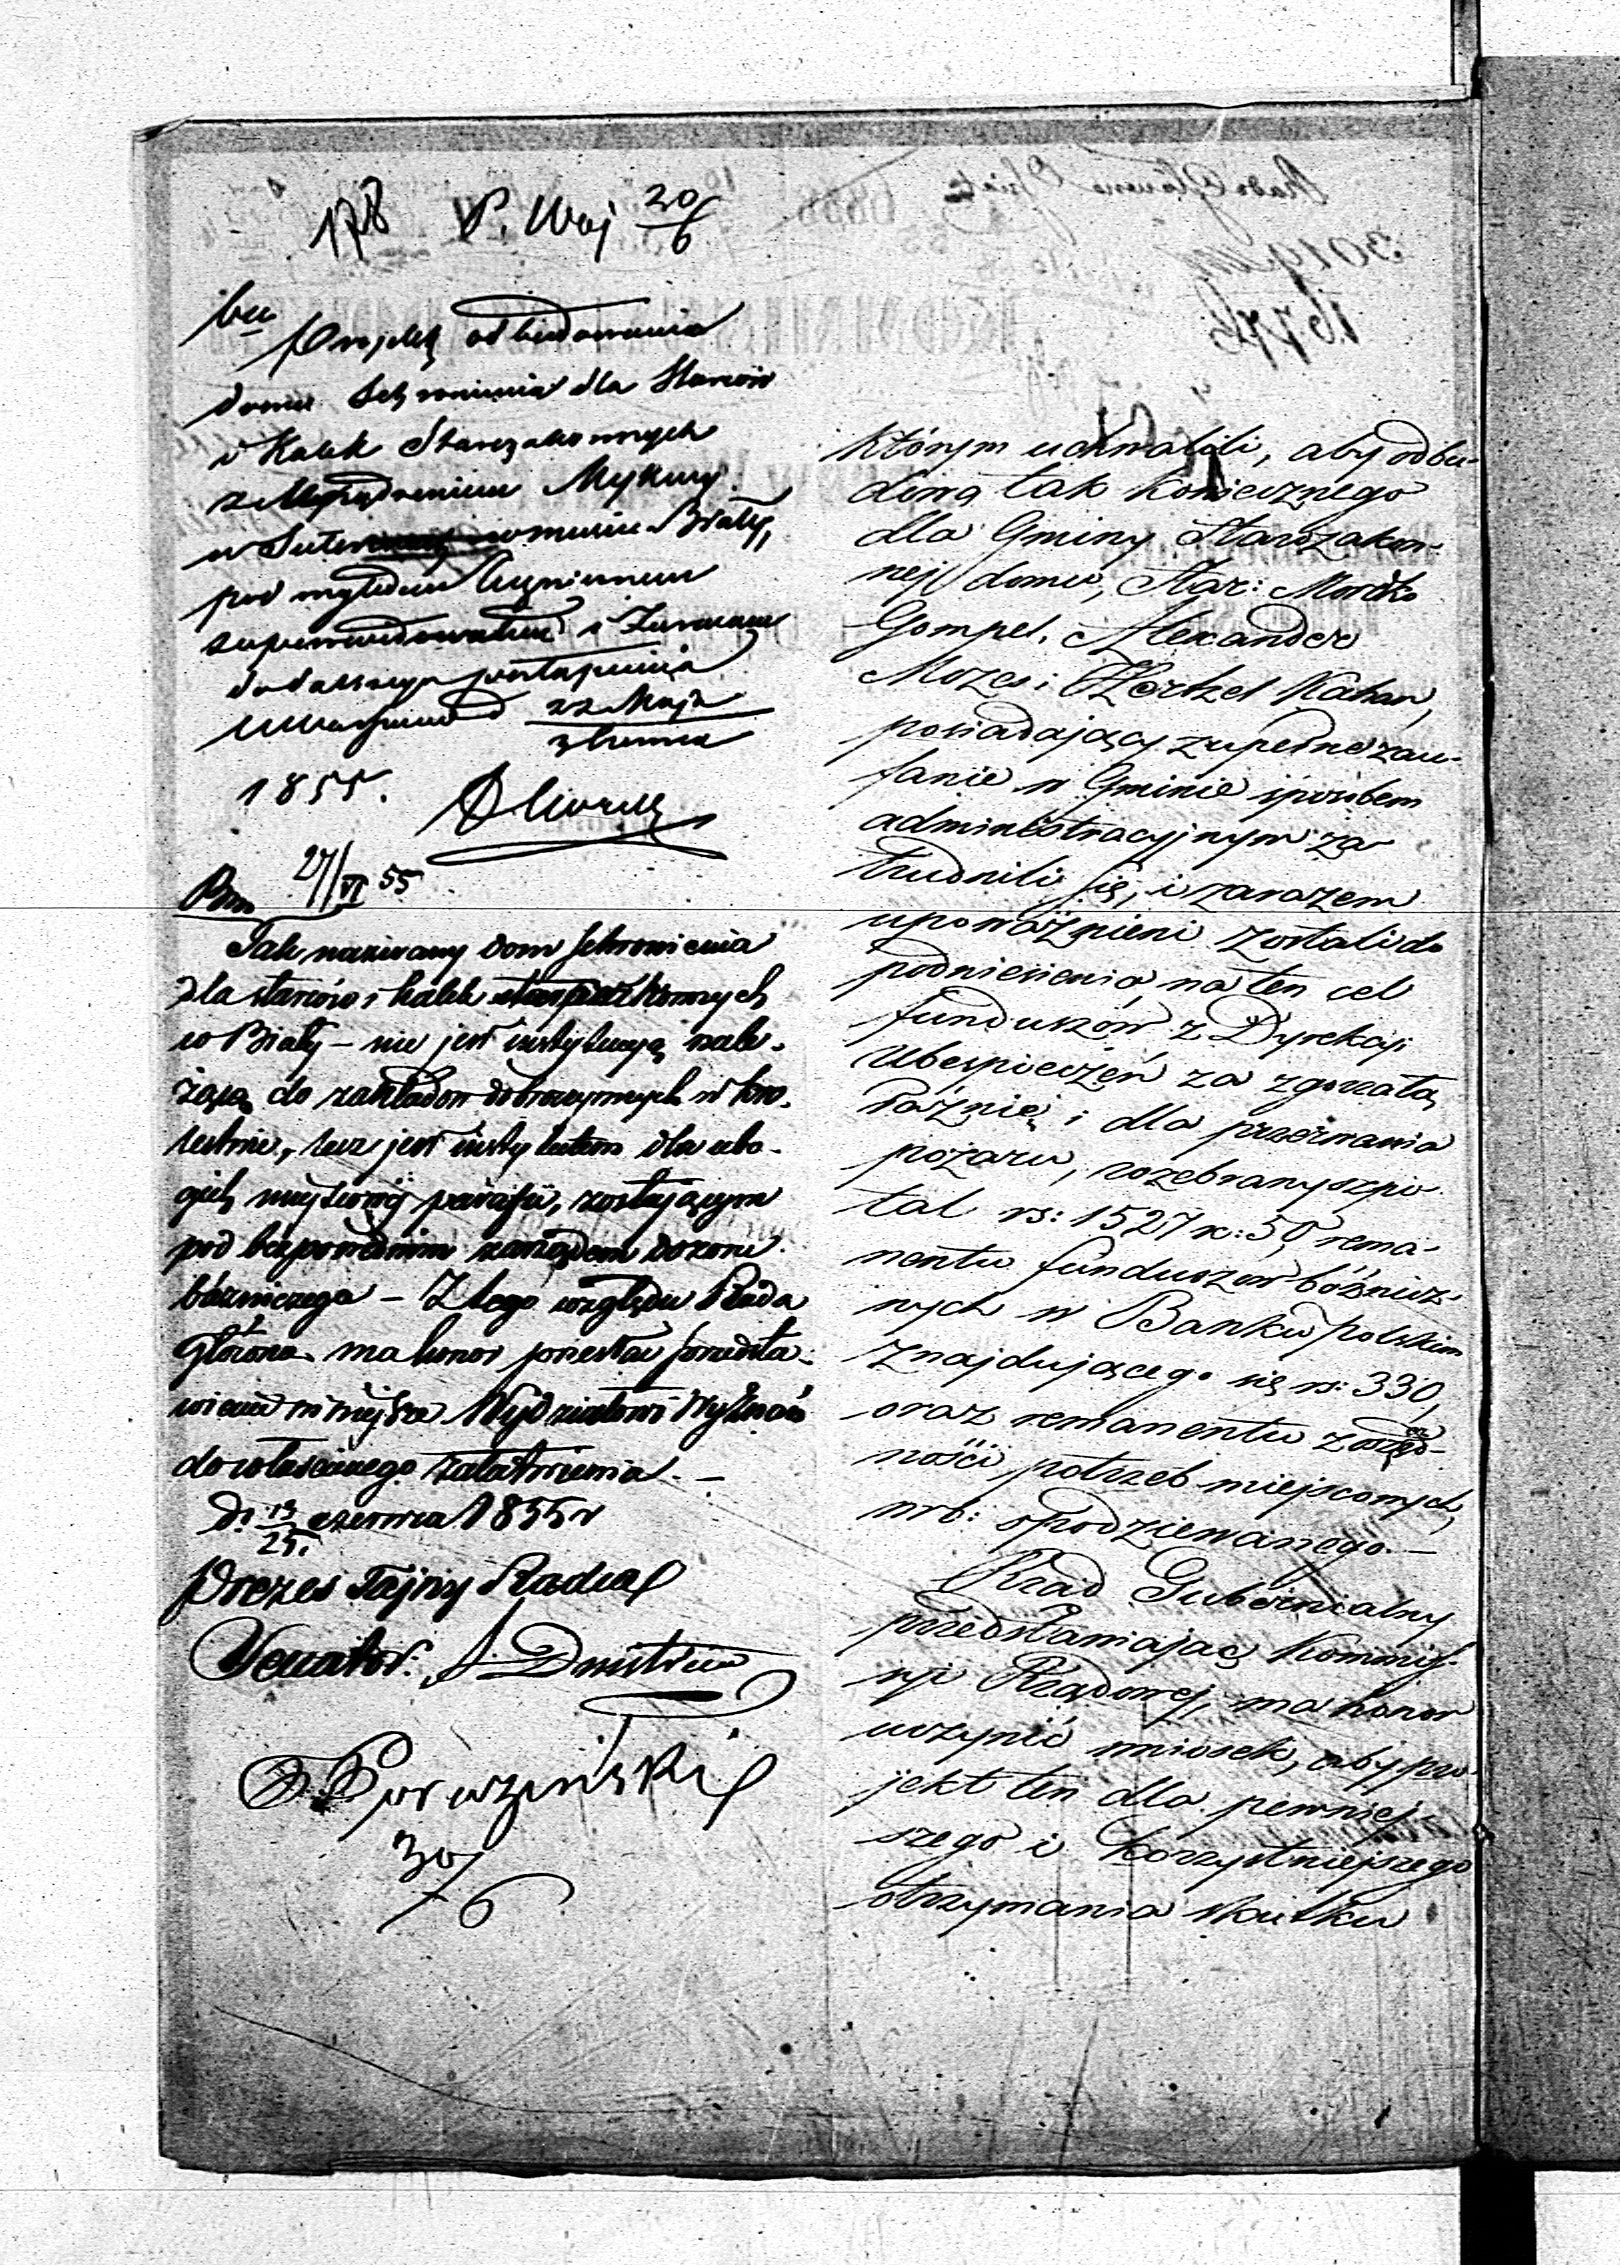 178 P. Woj 20/6
Projekt odbudowania
domu Schronienia dla Starców
i Kalek Starozakonnych
z Urządzeniem Mykwy
w mieście Biały,
pod względem
i
dalszego postąpienia
22 Maja
3 Czerwca
1855.
27/VI 55
Tak nazwany dom schronienia
dla starców i kalek starozakonnych
w Biały – nie jest instytucyą nale-
żącą do zakładów dobroczynnych w Kró-
lestwie, lecz jest instytutem dla ubo-
gich miejscowéj parafii, zostającym
pod bezpośrednim zarządem dozoru
bóżniczego – Z tego względu Rada
Główna ma honor przesłać przedsta-
wienie niniejsze Wydziałowi Wyznań
do właściwego załatwienia. –
d. 13/25 czerwca 1855 r
Prezes Tajny Radca
Senator
30/6
którym uchwalili, aby odbu-
dową tak koniecznego
dla Gminy Starozakon-
nej domu, Star: Moritz
Gompel, Alexander
Mozes i Hertzel Kahan,
posiadający zupełne zau-
fanie w Gminie sposobem
administracyjnym za-
trudnili się, i zarazem
upoważnieni zostali do
podniesienia na ten cel
funduszów z Dyrekcji
Ubezpieczeń za zgorzałą
łaźnię i dla przerwania
pożaru, rozebrany szpi-
tal rs: 1527 k: 50, rema-
nentu funduszów bóżnicz-
nych w Banku polskim
znajdującego się rs: 330,
oraz remanentu z oszczęd-
ności potrzeb miejscowych,
wrb: spodziewanego. –
Rząd Gubernialny
przedstawiając Kommis-
syi Rządowej, ma honor
uczynić wniosek, aby pro-
jekt ten dla pewniej-
szego i korzystniejszego
otrzymania skutku